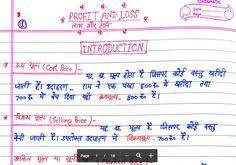 ①
PROFIT AND LOSS
लाभ और हानि
Date
Page
INTRODUCTION
* क्रय मूल्य (Cost Price) :-
यह वह मूल्य होता है जिसपर कोई वस्तु खरीदी
जाती है। उदाहरण - राम ने एक पंखा 500रु में खरीदा तथा
700रु में बेच दिया यहाँ क्रयमूल्य - 500रु है।
* विक्रय मूल्य (Selling Price) :-
यह वह मूल्य है जिसपर कोई वस्तु
बेची जाती है। उपरोक्त उदाहरण में विक्रयमूल्य - 700रु है।
Page